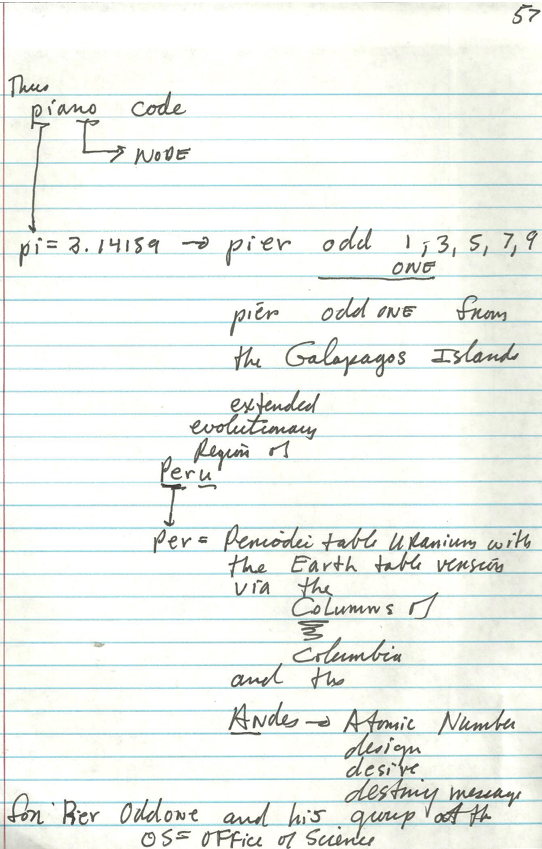 57
Thus
piano code
NODE
pi = 3.14159 → pier odd 1, 3, 5, 7, 9
ONE
pier odd ONE from
the Galapagos Islands
extended
evolutionary
Region of
Peru
Per = Periodic table Uranium with
the Earth table version
via the
Columns of
Columbia
and the
ANdes → Atomic Number
design
desire
destiny message
for Pier Oddone and his group at the
OS = OFFice of Science